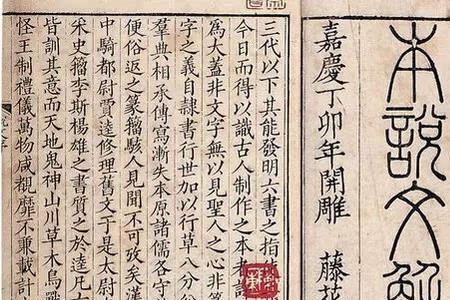 本說文解
嘉慶丁卯年開雕 藤
三代以下其能發明六書之指
今日而得以識古人制作之本者
爲大蓋非文字無以見聖人之心非
字之義自隸書行世加以行草八分
羣典相承傳寫漸失本原諸儒各守
便俗返之篆籀駭人見聞不可攷矣漢
中騎都尉賈逵修理舊文于是太尉
采史籀李斯楊雄之書質之於逵凡
皆訓其意而天地鬼神山川草木鳥
怪王制禮儀萬物咸覩靡不兼載計